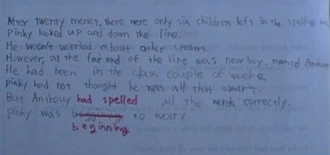 After twenty minet, there were only six children left in the spelling
Pinky looked up and down the line.
He wasn't worried about other
However, at the far end of the line was new boy, named Anthony
He had been in the class couple of weeks
pinky had not thought he was all that smart.
But Anthony had spelled all the words correctly.
pinky was to worry
beginning